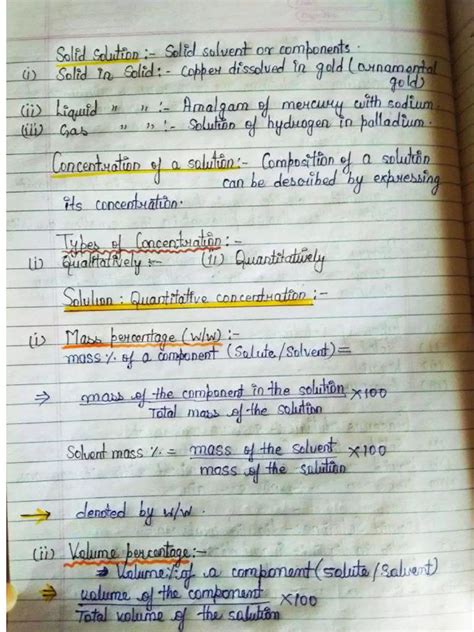 Solid Solution :- Solid solvent or components.
(i) Solid in Solid :- Copper dissolved in gold (ornamental gold)
(ii) Liquid " " :- Amalgam of mercury with sodium.
(iii) Gas " " :- Solution of hydrogen in palladium.
Concentration of a solution :- Composition of a solution
can be described by expressing
its concentration.
Types of Concentration :-
(i) Qualitatively :- (ii) Quantitatively
Solution : Quantitative concentration :-
(i) Mass percentage (w/w) :-
mass % of a component (Solute/Solvent) =
⇒ mass of the component in the solution ×100
Total mass of the solution
Solvent mass % = mass of the solvent ×100
mass of the solution
→ denoted by w/w.
(ii) Volume percentage :-
⇒ Volume % of a component (solute/solvent)
⇒ volume of the component ×100
Total volume of the solution